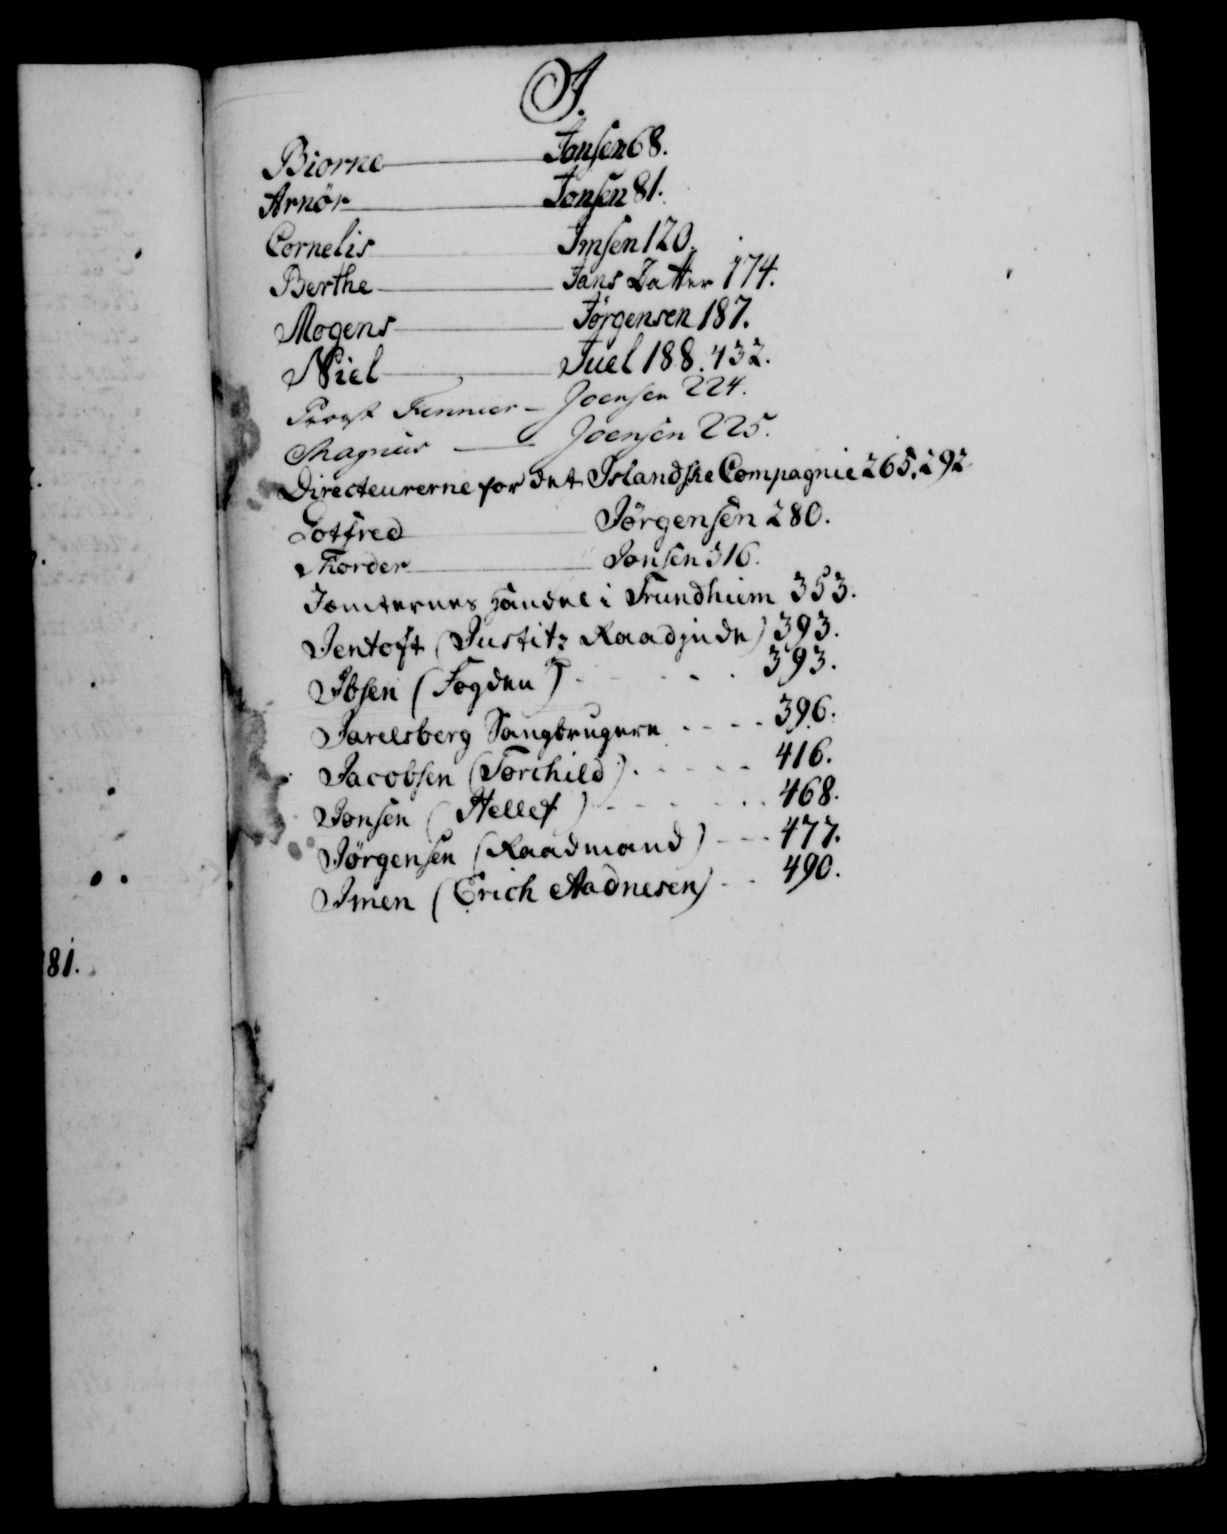 J.
Biorne Jonsen 68.
Arnør Jonsen 81.
Cornelis Imsen 120.
Berthe Jans Datter 174.
Mogens Jørgensen 187.
Niel Juel 188. 432.
Provst Finnur Joensen 224.
Magnus Joensen 225.
Directeurerne for det Islandske Compagnie 265. 292
Gotfred Jørgensen 280.
Thorder Jonsen 316.
Jemternes Handel i Trundhiem 353.
Jentoft (Justitz Raadinde) 393.
Ibsen (Fogden) 393.
Jarelsberg Saugbrugere 396.
Jacobsen (Torchild) 416.
Jonsen (Hellef) 468.
Jørgensen (Raadmand) 477.
Imen (Erich Aadnesen) 490.
81.